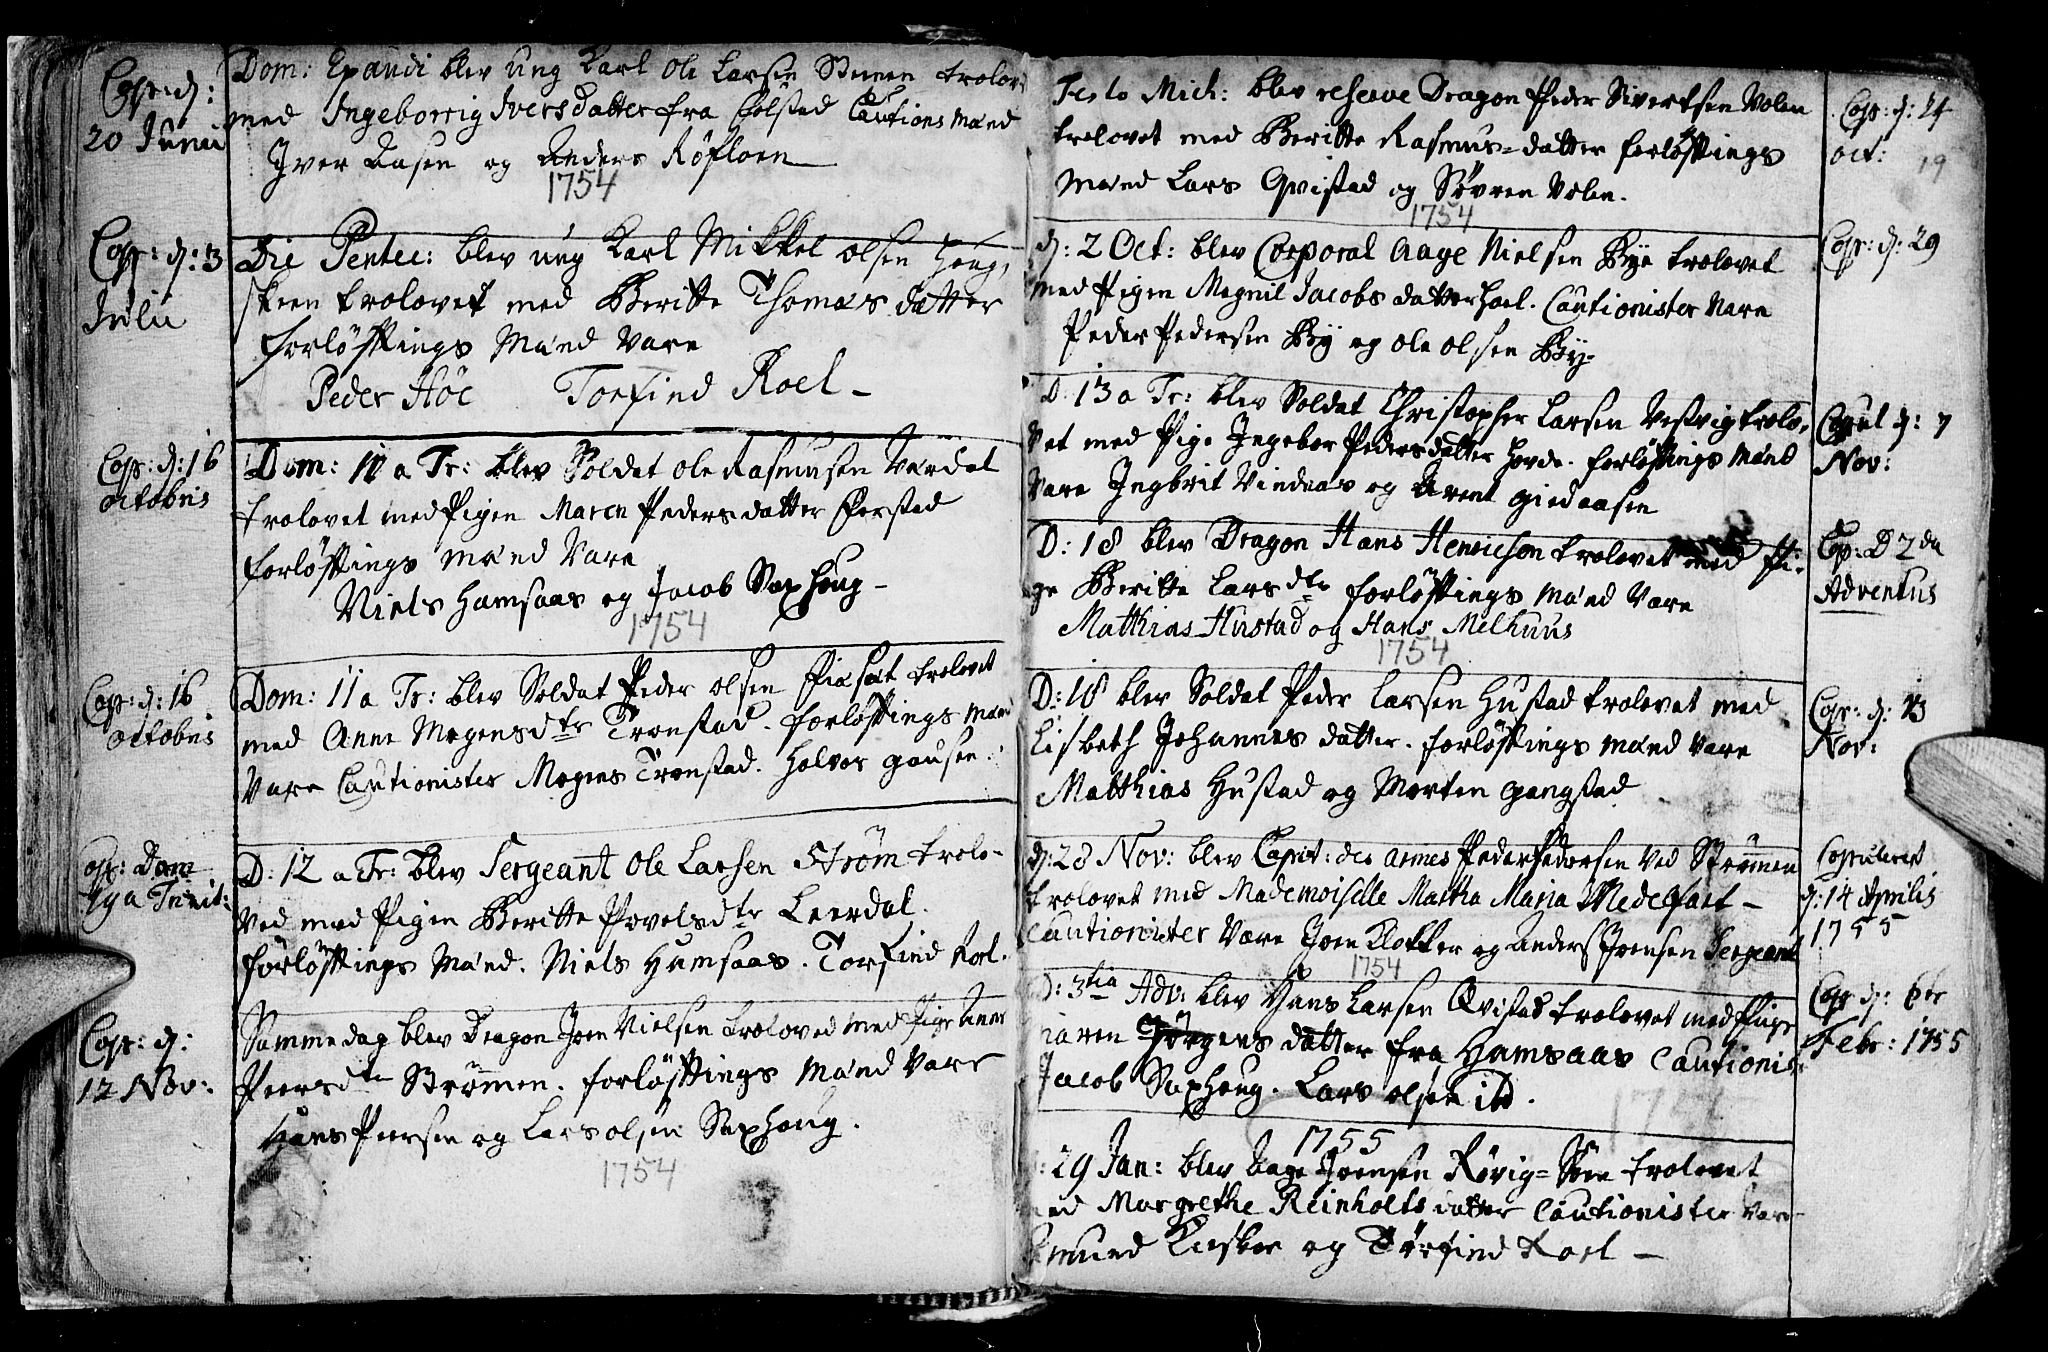 Cop: d:
20 Junii
Dom: Exaudi blev ung Karl Ole Larsen Stemen trolov
med Ingeborrig Iversdatter fra Holstad Cautions Mænd
Iver Aasen og Anders Røfloen
1754
Cop: d: 3
Julii
Die Pentec: blev ung Karl Mikkel Olsen Houg,
skeen trolovet med Beritte Thomas datter
forløftings Mænd vare
Peder Høe Torfind Roel -
Cop: d: 16
octobris
Dom: 10 a Tr: blev Soldat Ole Rasmusen Værdal
trolovet med Pigen Maren Peders datter
forløftings Mænd vare
Niels Hamsaas og Jacob Saxhoug -
1754
Cop: d: 16
octobris
Dom: 11 a Tr: blev Soldat Peder Olsen trolovet
med Anne Mogensdtr Tronstad. forløftings Mænd
vare Cautionister Mogens Tronstad. Halvor Gausen.
Cop: Dom
19 a Trinit:
D: 12 a Tr: blev Sergeant Ole Larsen Strøm trolo-
ved med Pigen Beritte Povelsdtr Leerdal.
forløftings Mænd. Niels Hamsaas. Torfind Roel.
Cop: d:
12 Nov:
Samme dag blev Dragon Joen Nielsen troloved med Pige Anne
Peersdtr Strømen. forløftings Mænd vare
Hans Peersen og Lars Olsen Saxhoug.
1754
Festo Mich: blev reserve Dragon Peder Sivertsen Volen
trolovet med Beritte Rasmus=datter forløftings
Mænd Lars Qvistad og Søvren Volen.
Cop: d: 14
oct:
19
1754
d: 2 Oct: blev Corporal Aage Nielsen Bye trolovet
med Pigen Magnil Jacobs datter Hoel. Cautionister vare
Peder Pedersen By og Ole Olsen By.
Cop: d: 29
D. 13 a Tr: blev Soldat Christopher Larsen Vestvig trolo,
vet med Pige Ingebor Pedersdatter Hovde. forløftings Mænd
vare Ingbrit Vindnas og Arent Giedaasen
Copul d: 7
Nov:
D: 18 blev Dragon Hans Henricson trolovet med Pi-
ge Beritte Larsdtr forløftings Mænd vare
Matthias Hustad og Hans Melhuus
Cop: D 2da
Adventus
1754
D: 18 blev Soldat Peder Larsen Hustad trolovet med
Lisbeth Johannes datter. forløftings Mænd vare
Matthias Hustad og Morten Gangstad
Cop: d: 13
Nov:
d: 28 Nov: blev Capit: des armes Peder Pedersen ved Strømen
trolovet med Mademoiselle Martha Maria Medelfart -
Cautionister vare Joen Klokker og Anders Joensen Sergeant
Copuleret
d: 14 Aprilis
1755
1754
D: 3tia Adv: blev Hans Larsen Qvistad trolovet med Pige
Maren Jørgens datter fra Hamsaas Cautionis:
Jacob Saxhoug. Lars Olsen ibd.
Cop d: 6te
Febr: 1755
1755
d: 29 Jan: blev Aage Joensen Rørvig=Søen trolovet
med Margrethe Reinholts datter Cautionister vare
Amund Kirkboe og Torfind Roel -